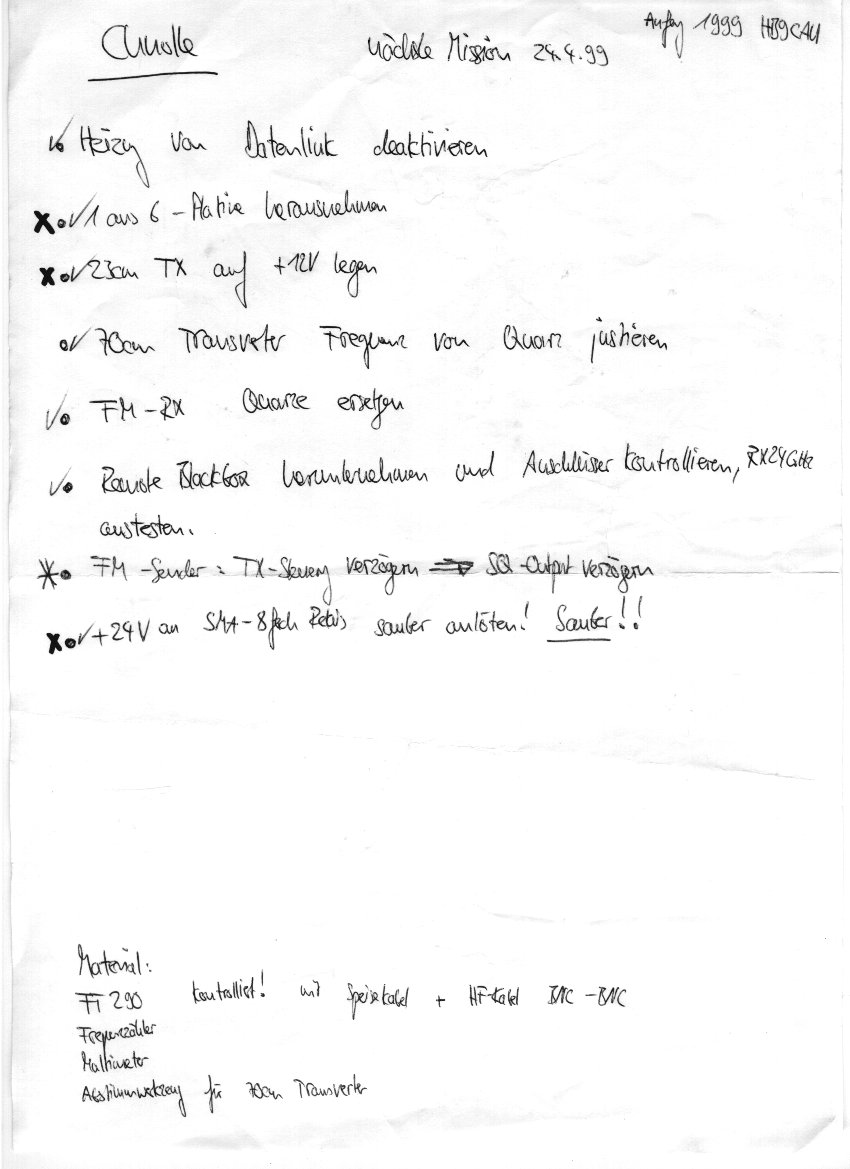 Anfang 1999 HB9CAU
nächste Mission 24.4.99
Heizung von Datenlink deaktivieren
1 aus 6 - Platine herausnehmen
23cm TX auf +12V legen
70cm Transverter Frequenz von Quarz justieren
FM-RX Quarze ersetzen
Remote Blackbox herunternehmen und Anschlüsse kontrollieren, RX24GHz
austesten.
FM-Sender: TX-Steuerung verzögern ⇒ SQ-Output verzögern
+24V an SMA-8fach Relais sauber anlöten! Sauber!!
Material:
FT 290 kontrolliert! mit Speisekabel + HF-Kabel BNC-BNC
Frequenzzähler
Multimeter
Abstimmwerkzeug für 70cm Transverter